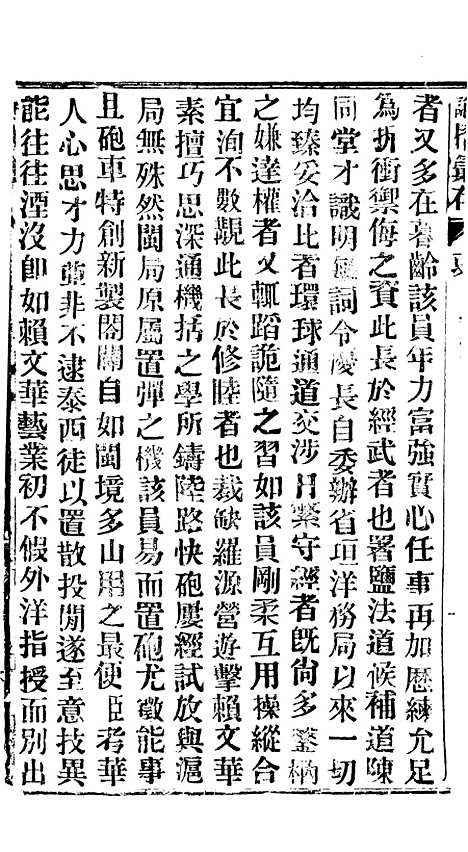 者又多在暮齡該員年力富強實心任事再加歷練允足
為折衝禦侮之資此長於經武者也署鹽法道候補道陳
同堂才識明通詞令優長自委辦省垣洋務局以來一切
均臻妥洽比者環球通道交涉日繁守經者既尙多鑿枘
之嫌達權者又輒蹈詭隨之習如該員剛柔互用操縱合
宜洵不數覯此長於修睦者也裁缺羅源營遊擊賴文華
素擅巧思深通機括之學所鑄陸路快砲屢經試放與滬
局無殊然閩局原屬置彈之機該員易而置砲尤徵能事
且砲車特創新製闔闢自如閩境多山用之最便臣考華
人心思才力並非不逮泰西徒以置散投閒遂至意技異
能往往湮沒卽如賴文華藝業初不假外洋指授而別出